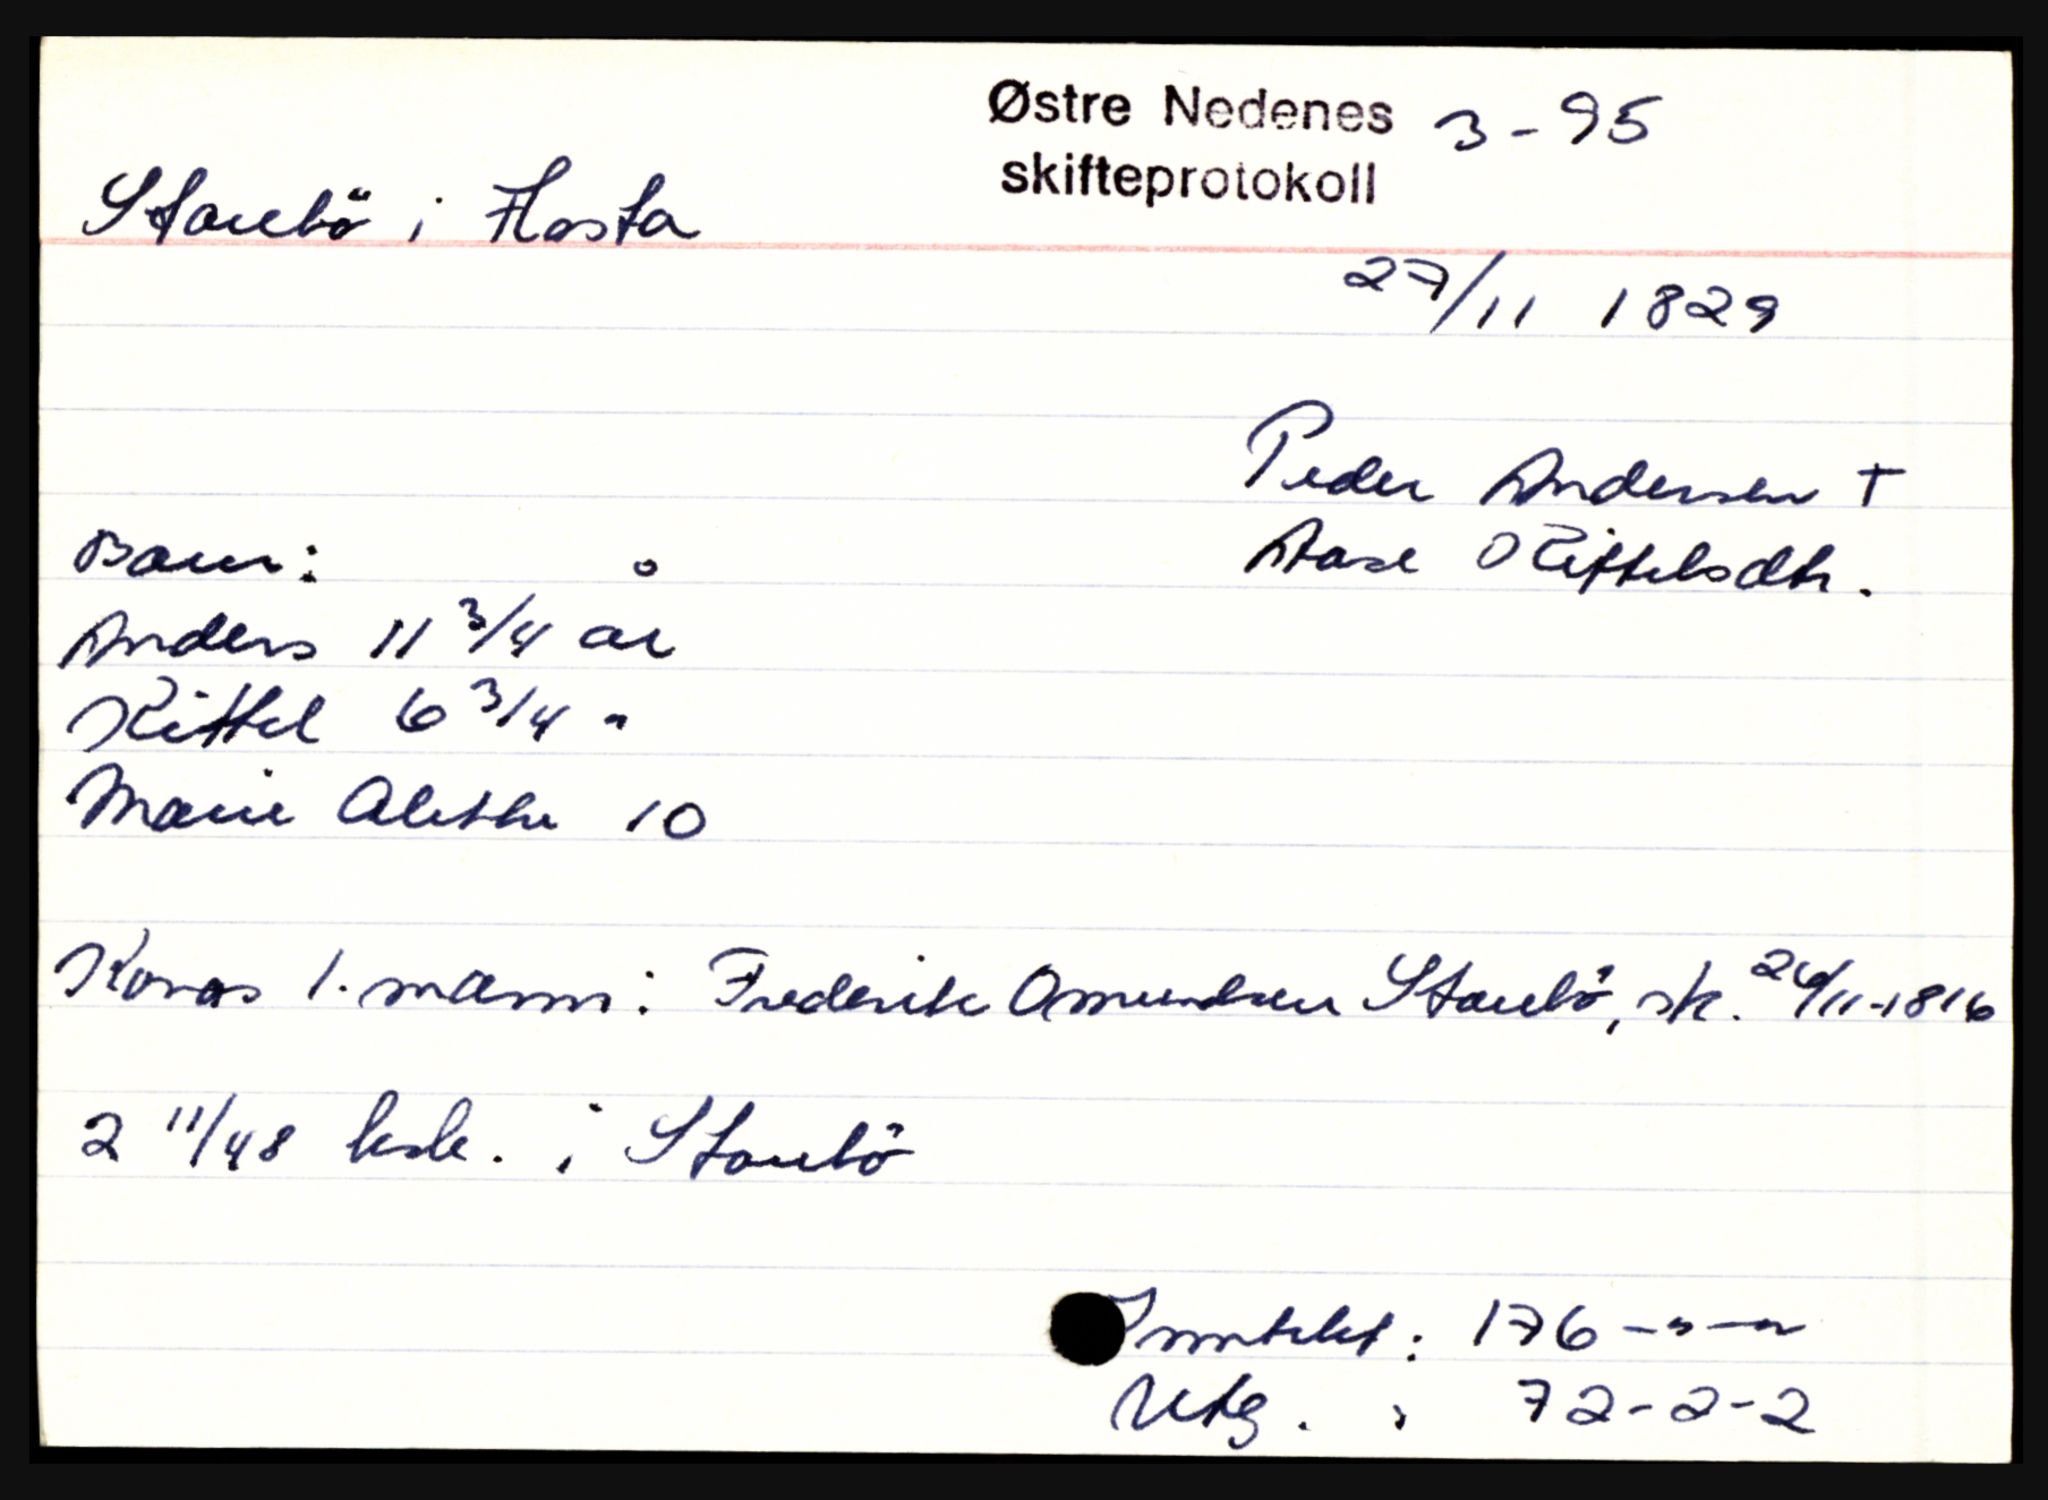 Østre Nedenes 3-95
skifteprotokoll
Staubö i Flosta
27/11 1829
Peder Andersen †
Aase Kittelsdtr.
Barn:
Anders 11 3/4 år
Kittel 6 3/4 "
Marie Alethe 10
Konas 1. mann: Frederik Amundsen Staubö, sk. 24/11-1816
2 11/48 i Staubö
Inntekt: 176-"-"
Utg. : 72-2-2